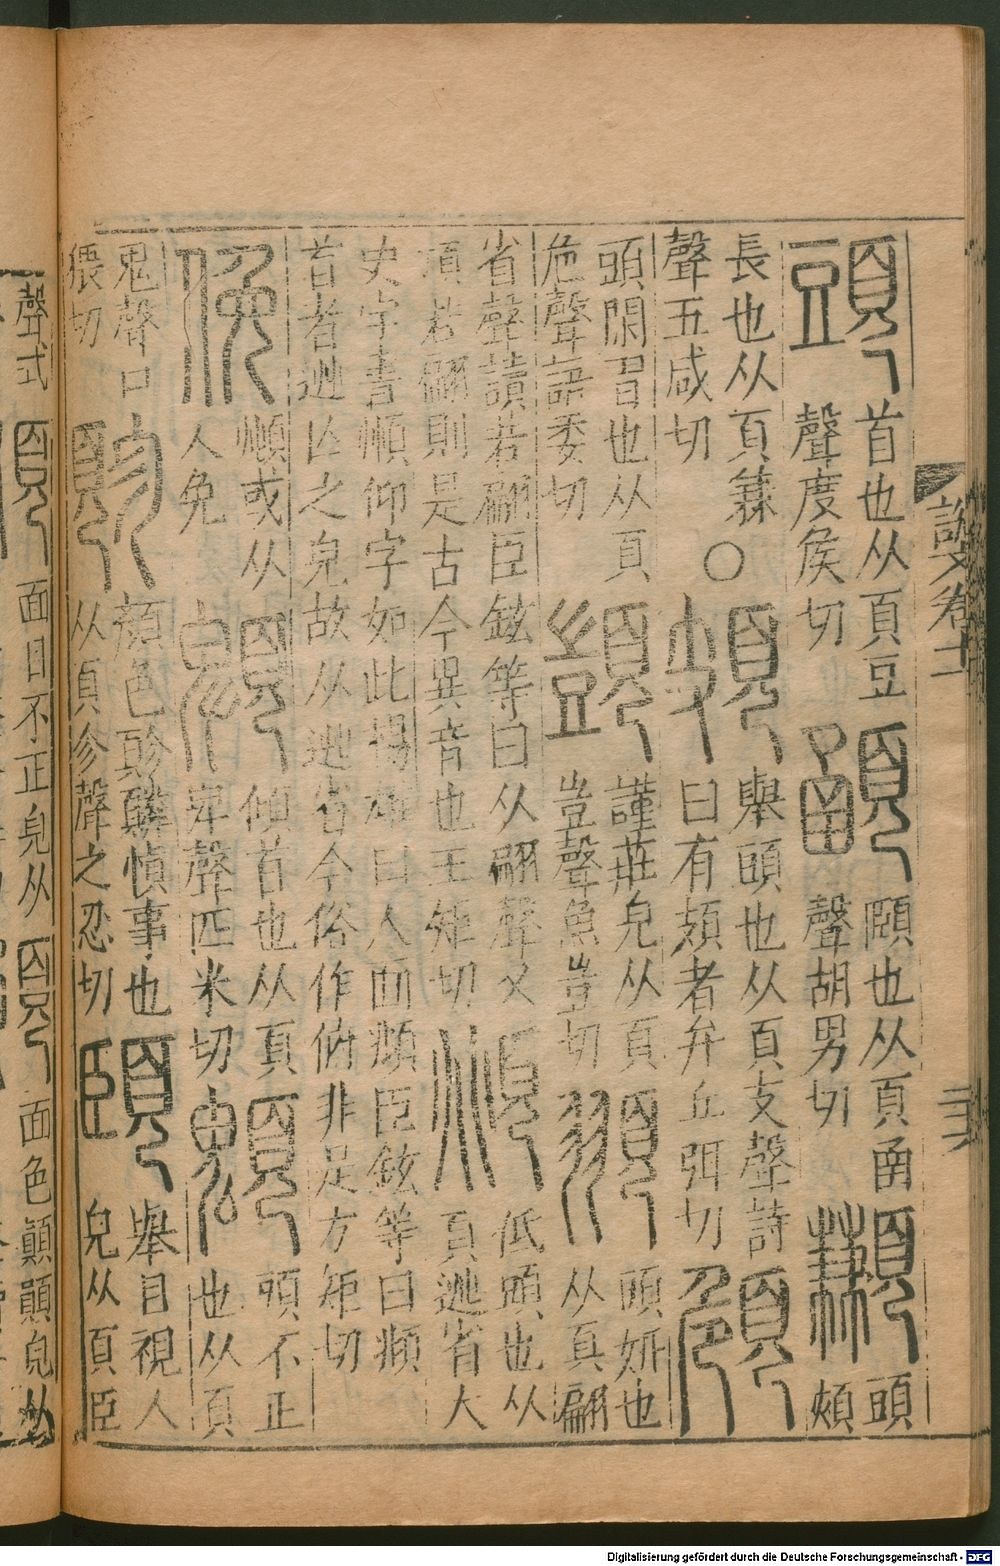 說文卷十一
二十六
頭
首也从頁豆
聲度侯切
顄
頤也从頁圅
聲胡男切
頭
頰
長也从頁兼
聲五咸切
○
頍
擧頭也从頁支聲詩
曰有頍者弁丘弭切
頠
頭閑習也从頁
危聲語委切
顗
謹莊皃从頁
豈聲魚豈切
頭妍也
从頁翩
省聲讀若翩臣鉉等曰从翩聲又
須若翩則是古今異音也王矩切
頫
低頭也从
頁逃省大
史字書順仰字如此楊雄曰人面頫臣鉉等曰頫
首者逃亡之皃故从逃省今俗作俯非是方矩切
俛
頫或从
人免
傾首也从頁
卑聲匹米切
頭不正
也从頁
鬼聲口
猥切
顔色㐱䫰慎事也
从頁㐱聲之忍切
擧目視人
皃从頁臣
聲式
面目不正皃从
面色顚顚皃从